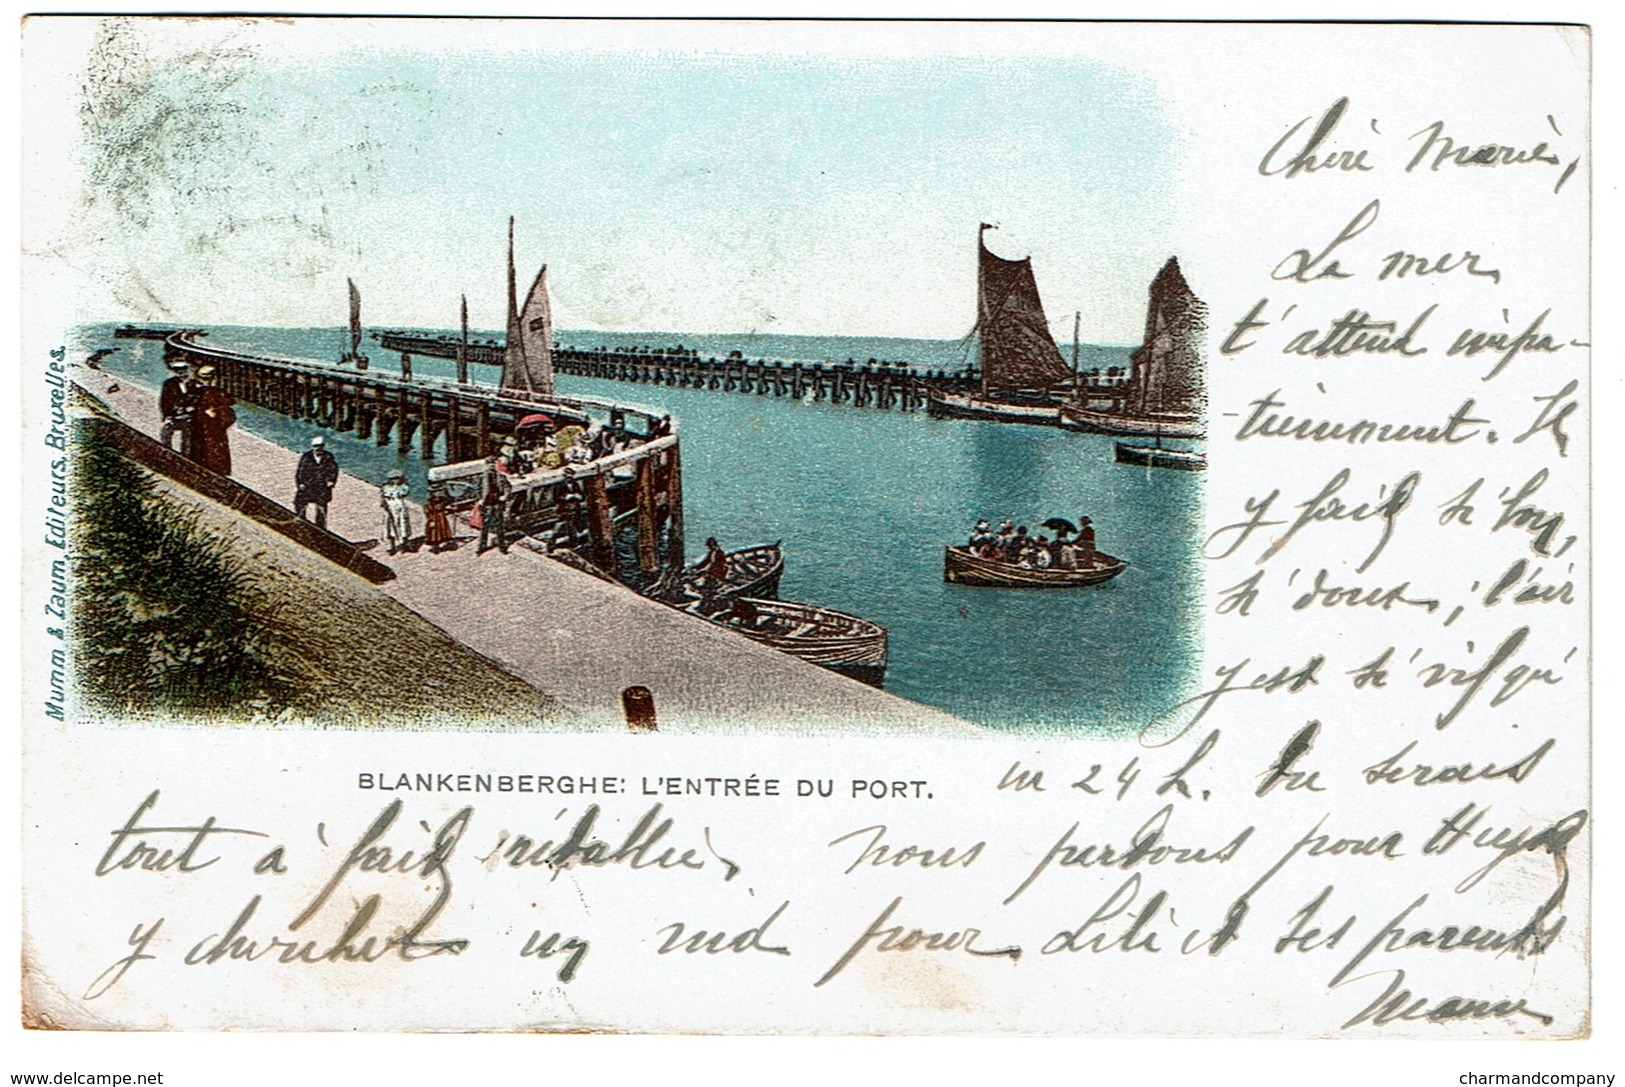 Mumm & Zaum, Editeurs, Bruxelles.
Chère Marie,
La mer
t'attend impa-
-tiemment. Il
y fait si bon,
si doux, ; l'air
y est si vif qu'
BLANKENBERGHE: L'ENTRÉE DU PORT.
en 24 h. tu serais
tout à fait rétablie, nous partons pour
y chercher un nid pour Lili et ses parents
delcampe.net
charmandcompany